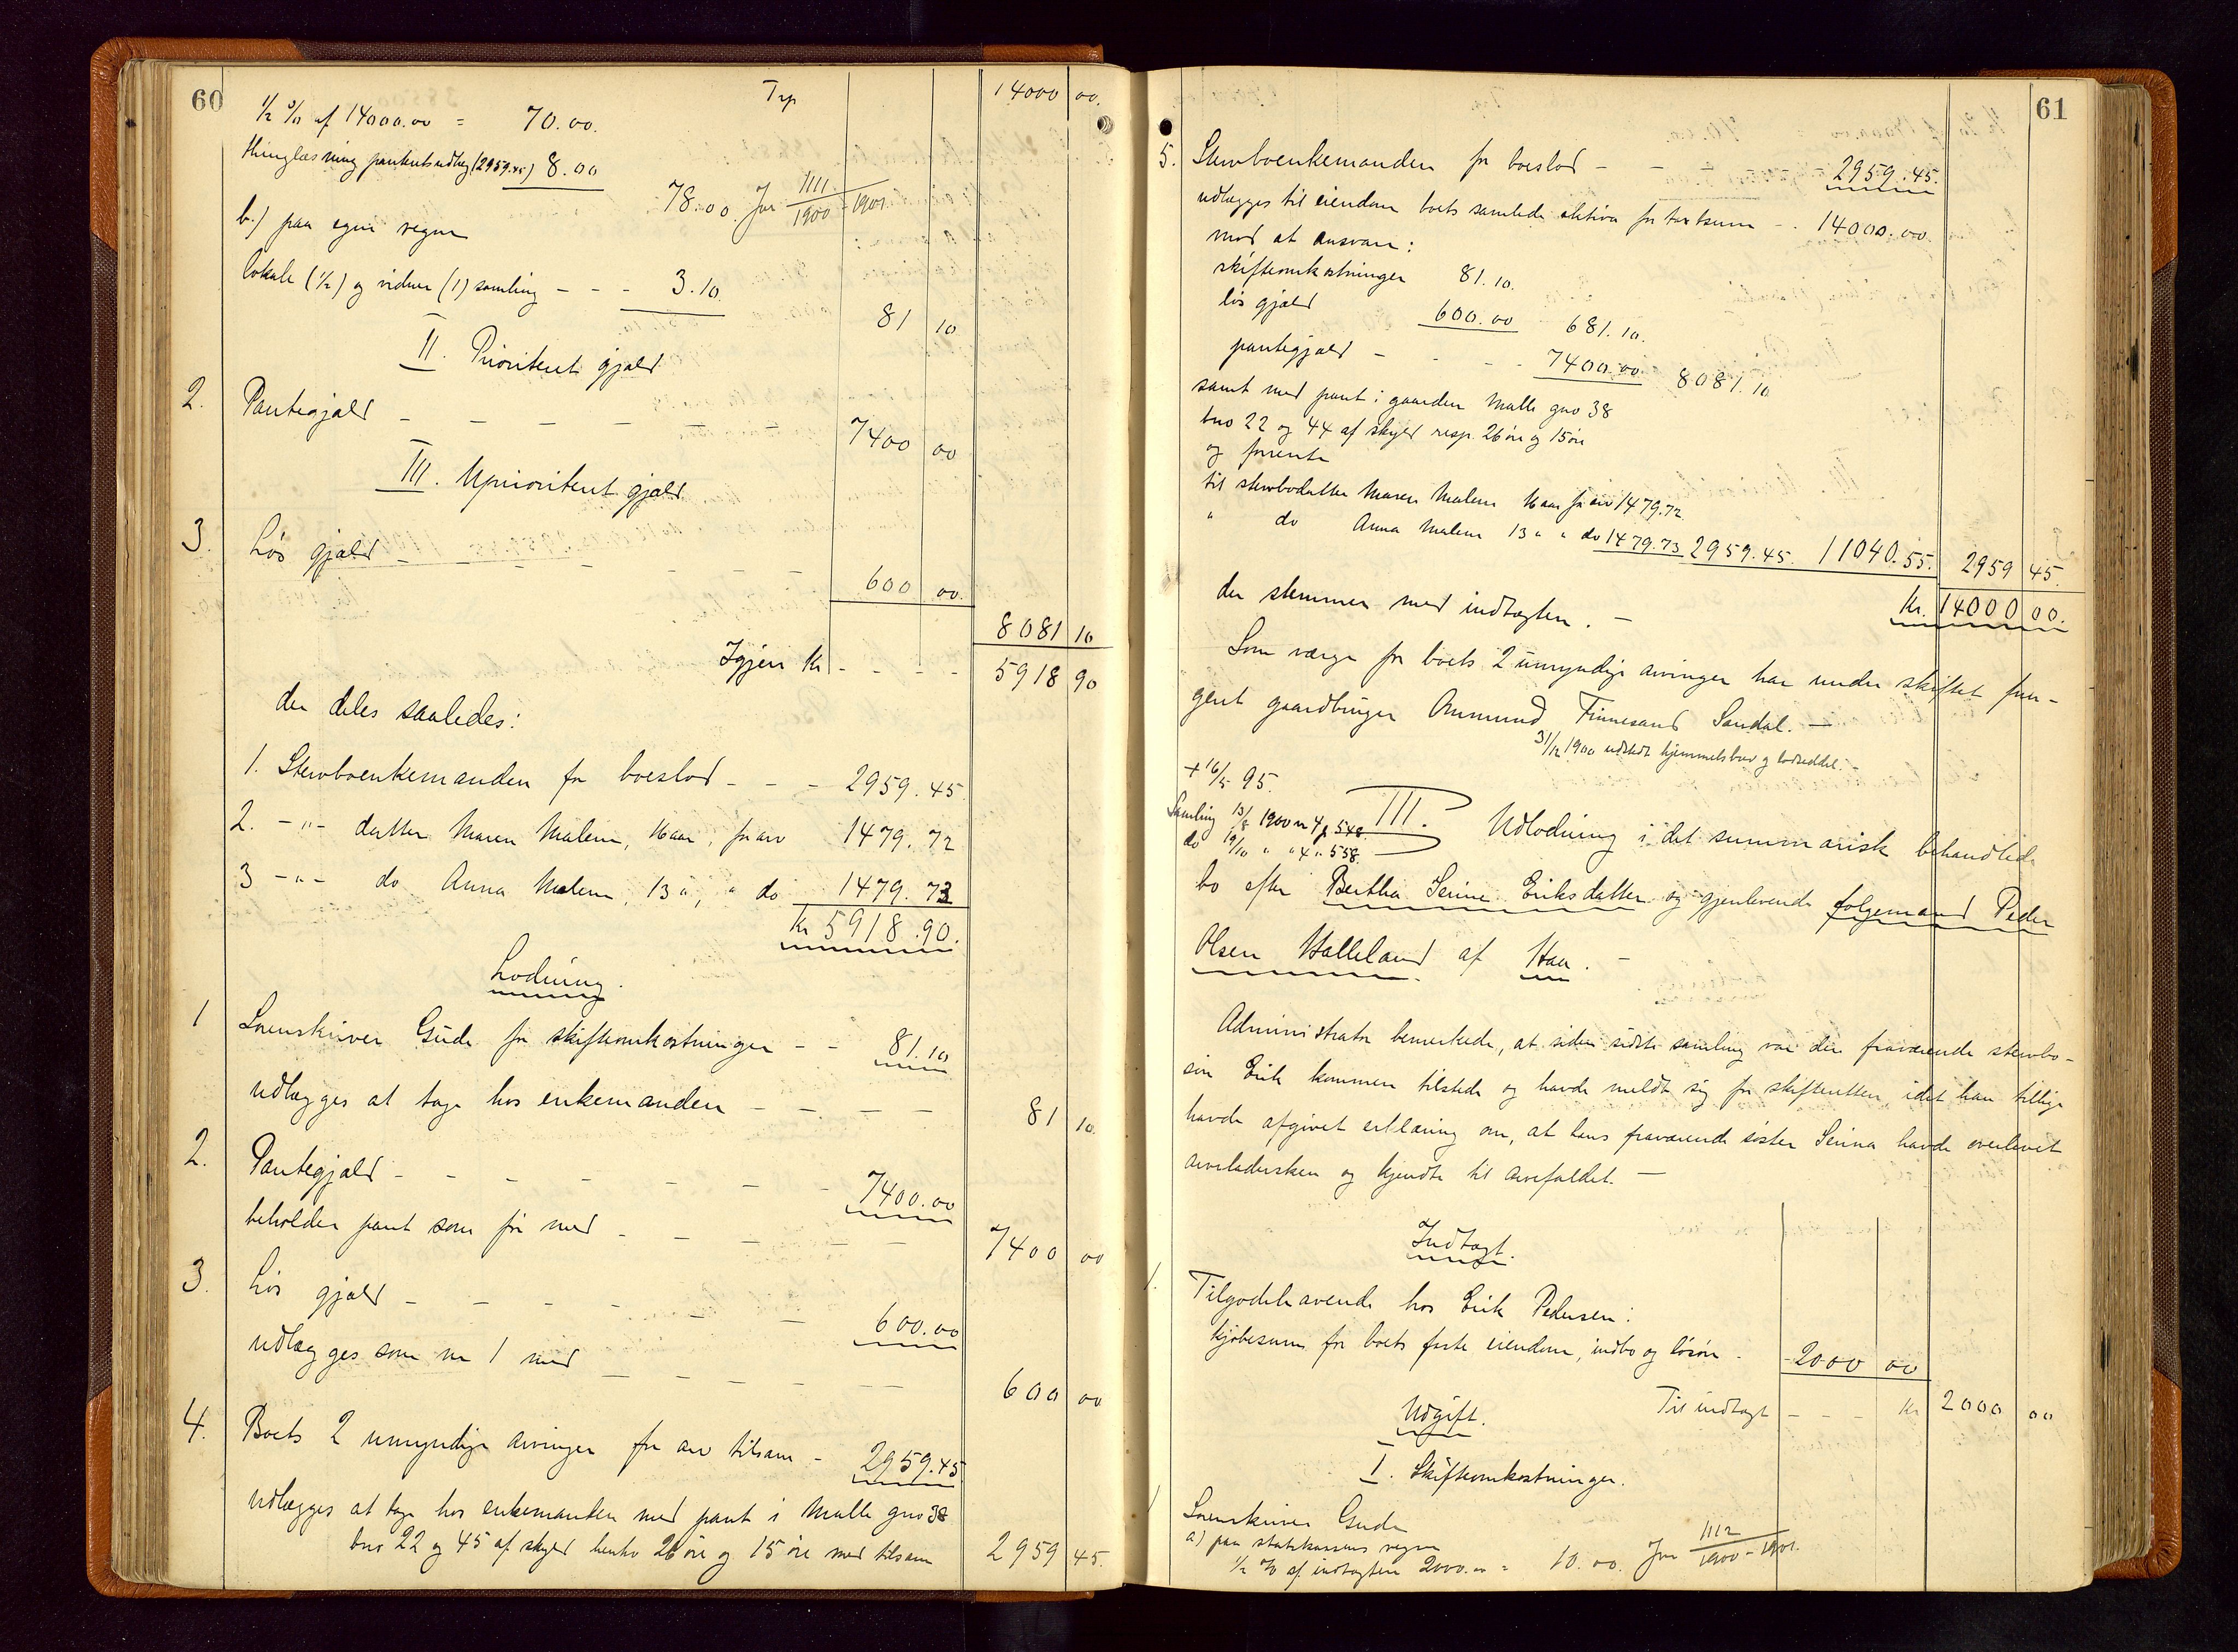 60
Trp 14000 00.
1/2 % af 14000.00 = 70.00.
thinglæsning panteretsudlæg (2959.45) 8.00
78.00. Jnr 1111/1900-1901
b.) paa egne vegne
lokale (1/2) og vidner (1) samling - - - 3.10.
81 10
II. Prioriteret gjæld
2. Pantegjæld - - - - - 7400 00
III. Uprioriteret gjæld
3. Løs gjæld - - - - - - - - 600 00.
8081 10
Igjen Kr - - - - 5918 90
der deles saaledes:
1. Stervboenkemanden for boeslod - - - 2959.45
2. -"- datter Maren Malene, 16 aar, for arv 1479.72
3 -"- do Anna Malene, 13 ", " do 1479.73
Kr 5918.90.
Lodning.
1 Sorenskriver Gude for skifteomkostninger - - 81.10
udlægges at tage hos enkemanden - - - - 81 10.
2. Pantegjæld - - - - - - - - 7400.00
beholder pant som før med - - - - - - 7400 00
3. Løs gjæld - - - - - - 600.00
udlægges som nr 1 med - - - - - - 600 00
4. Boets 2 umyndige arvinger for arv tilsam - 2959.45
udlægges at tage hos enkemanden med pant i Malle gno 38
bno 22 og 45 af skyld henhv 26 øre og 15 øre med tilsam 2959 45.
61
5. Stervboenkemanden for boeslod - - - - 2959.45.
udlægges til eiendom boets samlede aktiva for takstsum - . 14000.00.
mod at ansvare:
skifteomkostninger 81.10.
løs gjæld 600.00 681.10.
pantegjæld - - - - 7400.00 8081.10
samt med pant i gaarden Malle gno 38
bno 22 og 44 af skyld resp. 26 øre og 15 øre
og forrente
til stervbodatter Maren Malene 16 aar for arv 1479.72
" do Anna Malene 13 " " do 1479.73 2959.45. 11040.55. 2959 45.
der stemmer med indtægten. - Kr. 14000 00.
Som værge for boets 2 umyndige arvinger har under skiftet fun-
geret gaardbruger Ommund Finnesand Sandal. -
31/12 1900 udstedt hjemmelsbrev og lodseddel. -
+ 16/5 95.
Samling 13/8 1900 nr 4 p 548
do 19/10 " " 4 " 558.
III. Udlodning i det summarisk behandlede
bo efter Bertha Serine Eriksdatter og gjenlevende følgemand Peder
Olsen Halleland af Haa. -
Administrator bemerkede, at siden sidste samling var den fraværende stervbo-
søn Erik kommen tilstede og havde meldt sig for skifteretten, idet han tillige
havde afgivet erklæring om, at hans fraværende søster Serina havde overlevet
arveladersken og kjendte til arvefaldet. -
Indtægt.
1. Tilgodehavende hos Erik Pedersen:
kjøbesum for boets faste eiendom, indbo og løsøre - 2000 00
Til indtægt - - - Kr 2000 00
Udgift.
I. Skifteomkostninger.
1 Sorenskriver Gude
a) paa statskassens vegne
1/2 % af indtægten 2000.00 = 10.00. Jnr 1112/1900-1901.